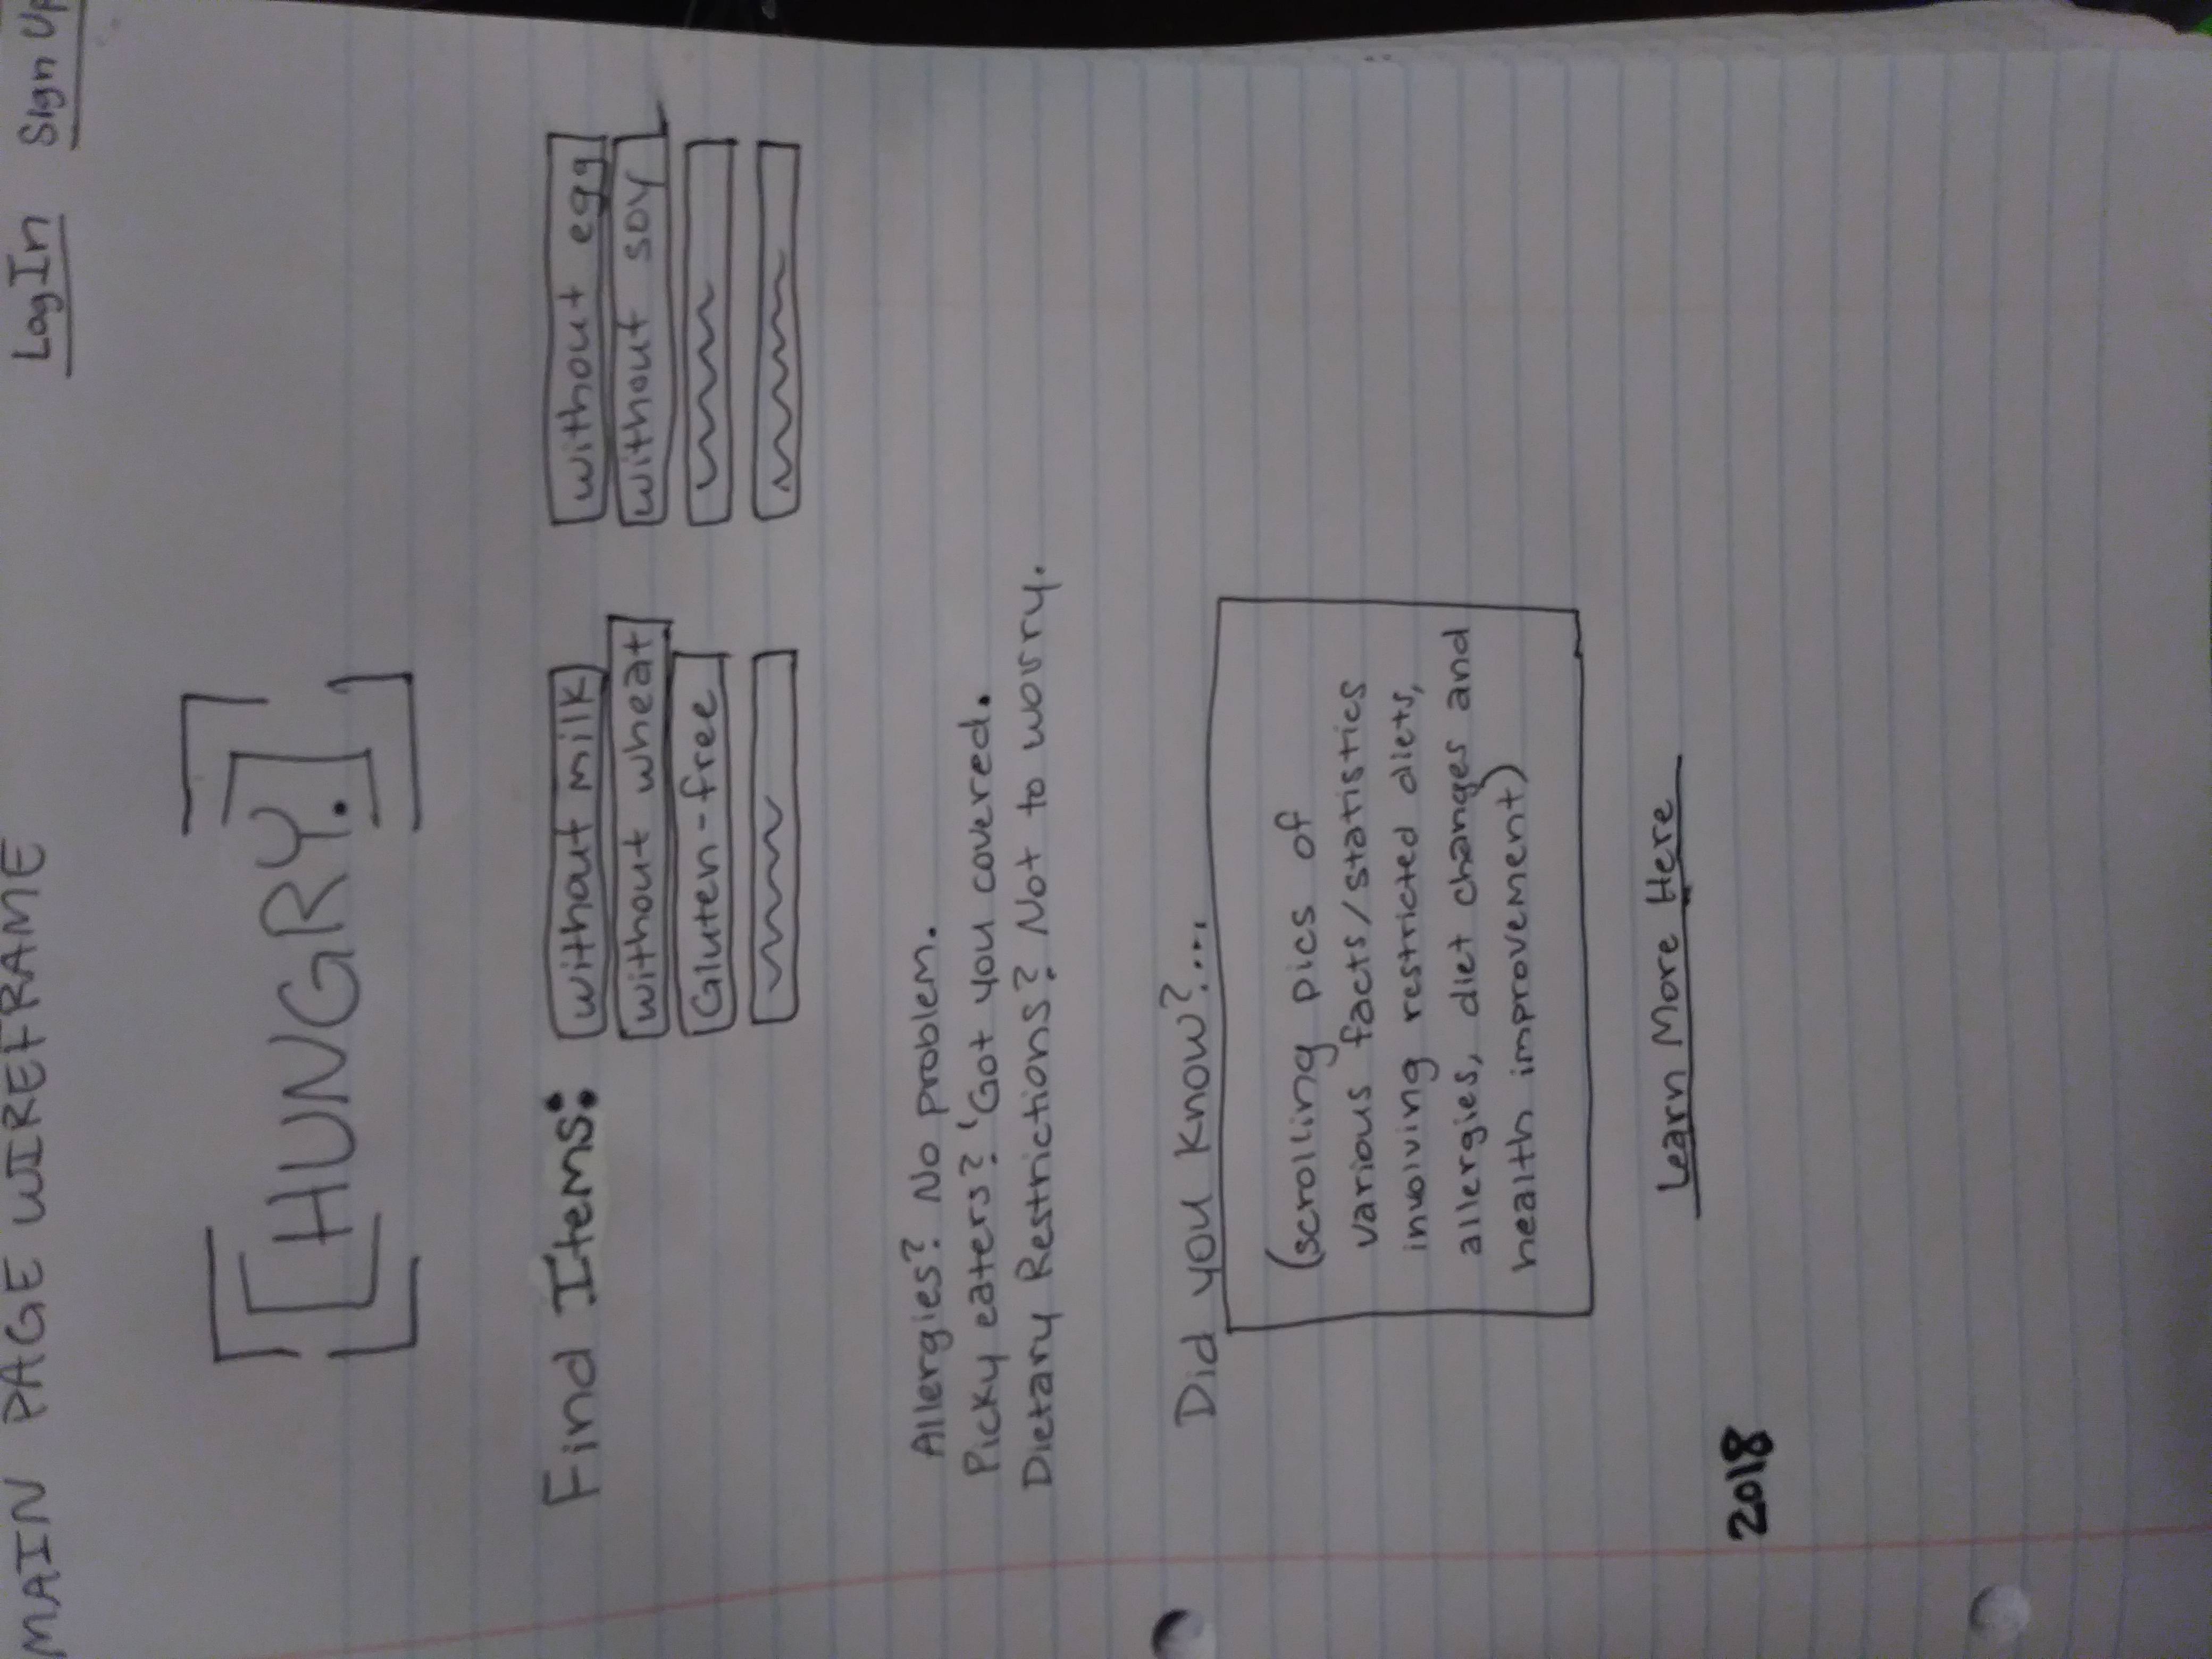 MAIN PAGE WIREFRAME
LogIn Sign Up
HUNGRY.
Find Items: without milk without egg
without wheat without soy
Gluten-free
Allergies? No problem.
Picky eaters? 'Got you covered.
Dietary Restrictions? Not to worry.
Did you know?...
(scrolling pics of
various facts/statistics
involving restricted diets,
allergies, diet changes and
health improvement)
Learn More Here
2018